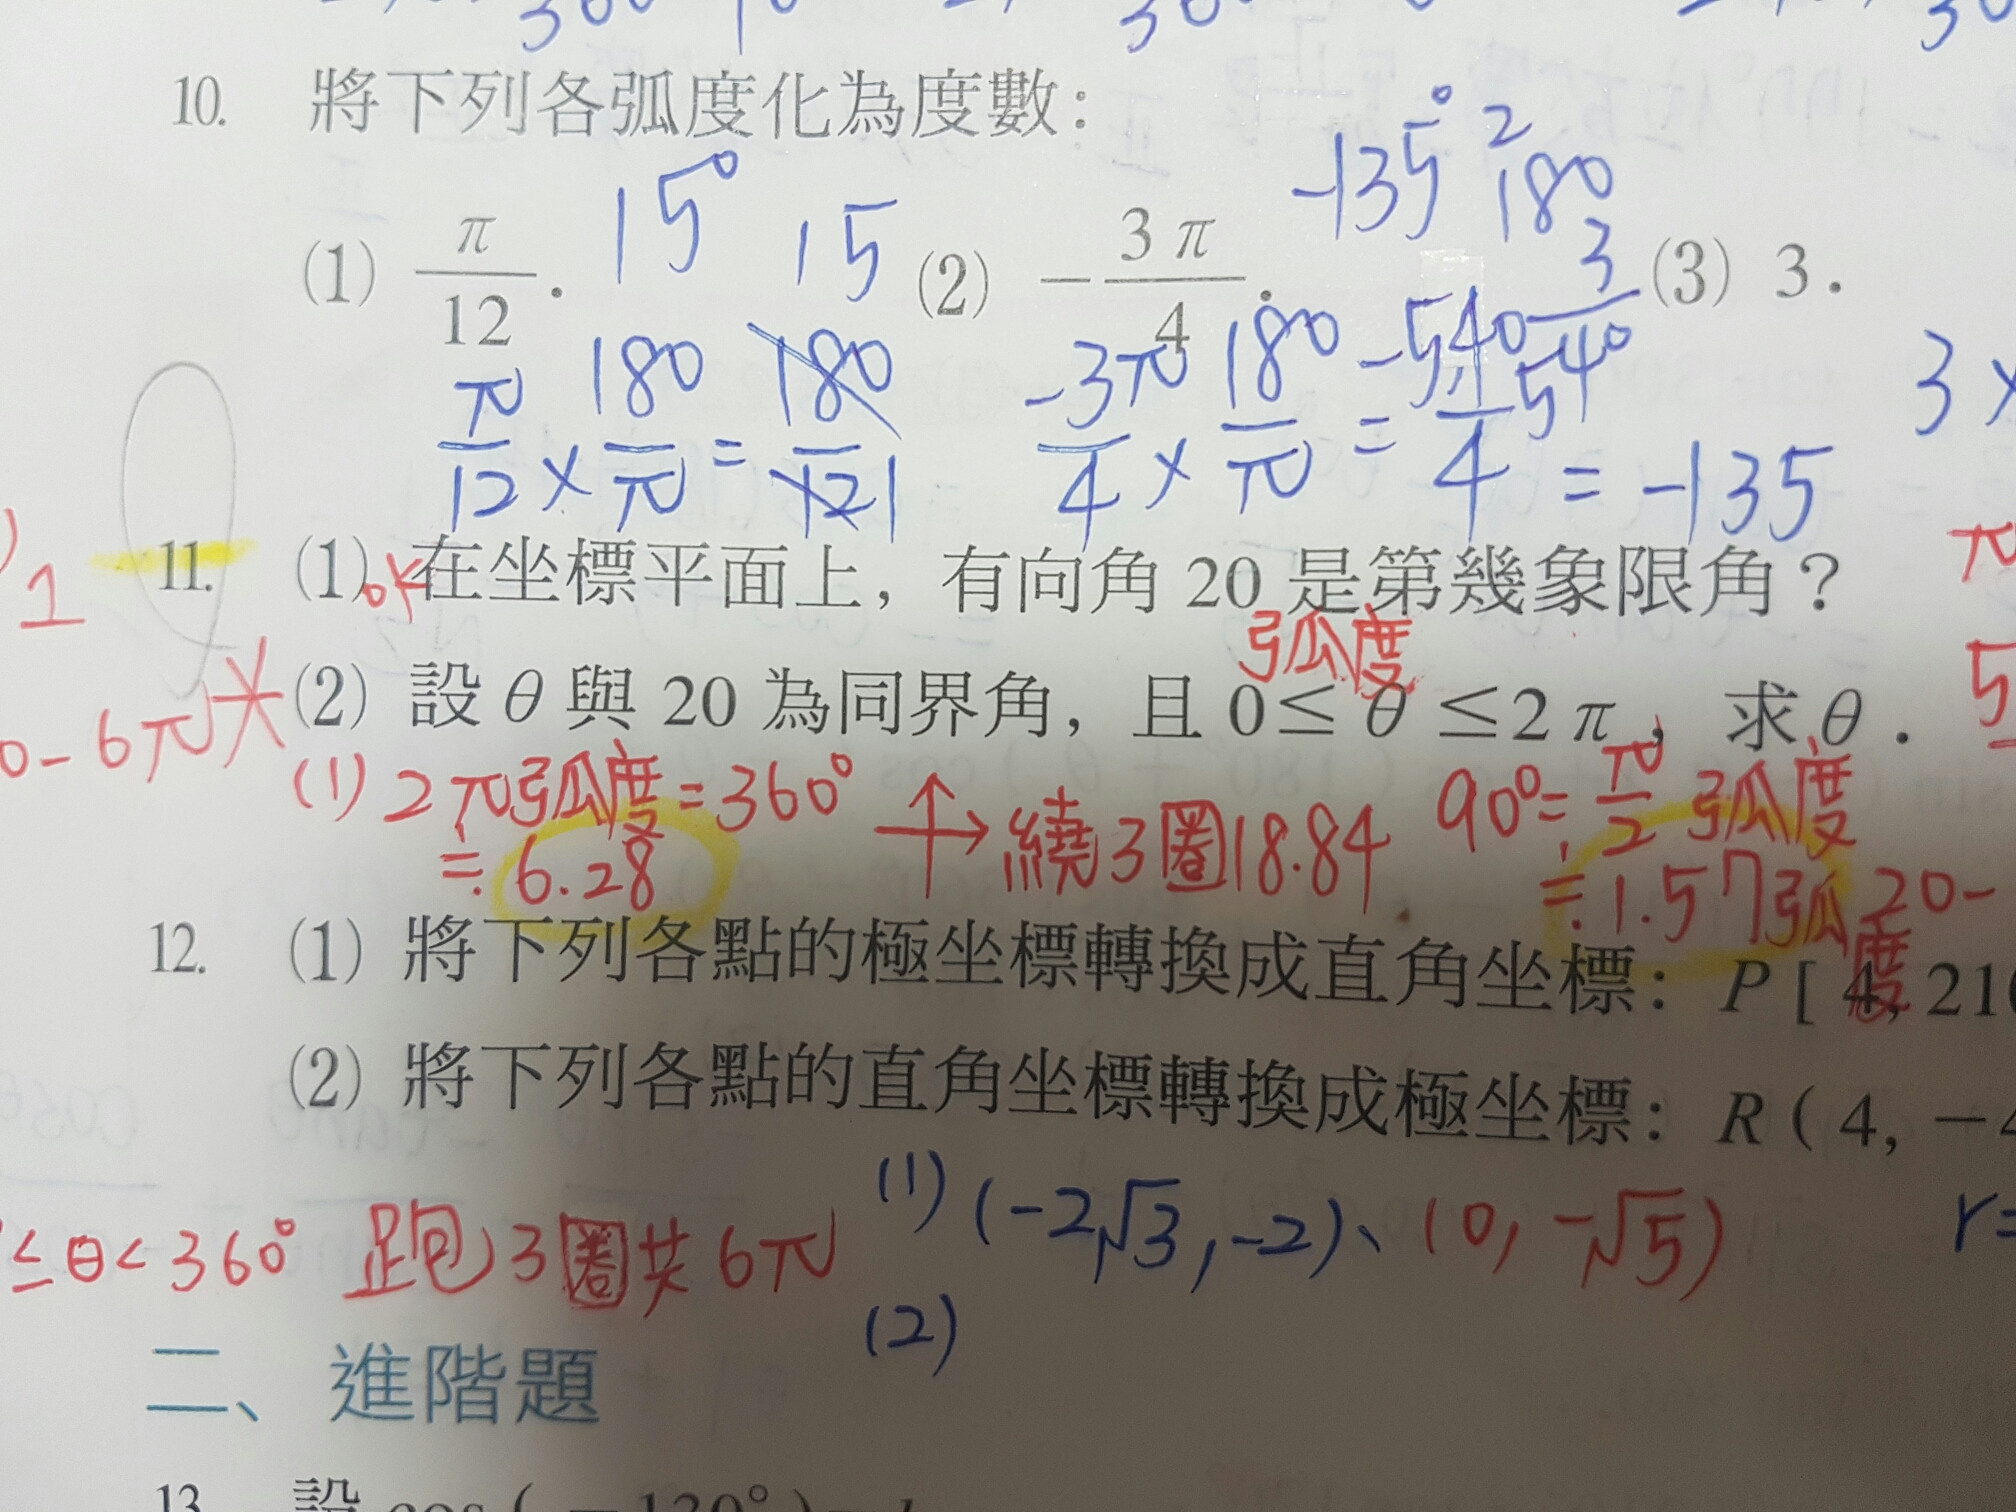 10. 將下列各弧度化為度數:
15° 15 -135° 2 180 3 540
(1) π/12. (2) -3π/4. (3) 3.
π/12 × 180/π = 180/12 1 -3π/4 × 180/π = -540/4 = -135 3×
1
11. (1) ok 在坐標平面上, 有向角 20 是第幾象限角?
弧度
(2) 設 θ 與 20 為同界角, 且 0≤ θ ≤2π, 求 θ.
0-6π
(1) 2π弧度=360° 繞3圈18.84 90°=π/2 弧度
≒6.28 ≒1.57弧度 20-
12. (1) 將下列各點的極坐標轉換成直角坐標: P [ 4, 210
(2) 將下列各點的直角坐標轉換成極坐標: R ( 4, -4
(1) (-2√3, -2)、(0, -√5) r=
≤θ<360° 跑3圈共6π
(2)
二、進階題
13. 設 cos ( -130° ) =